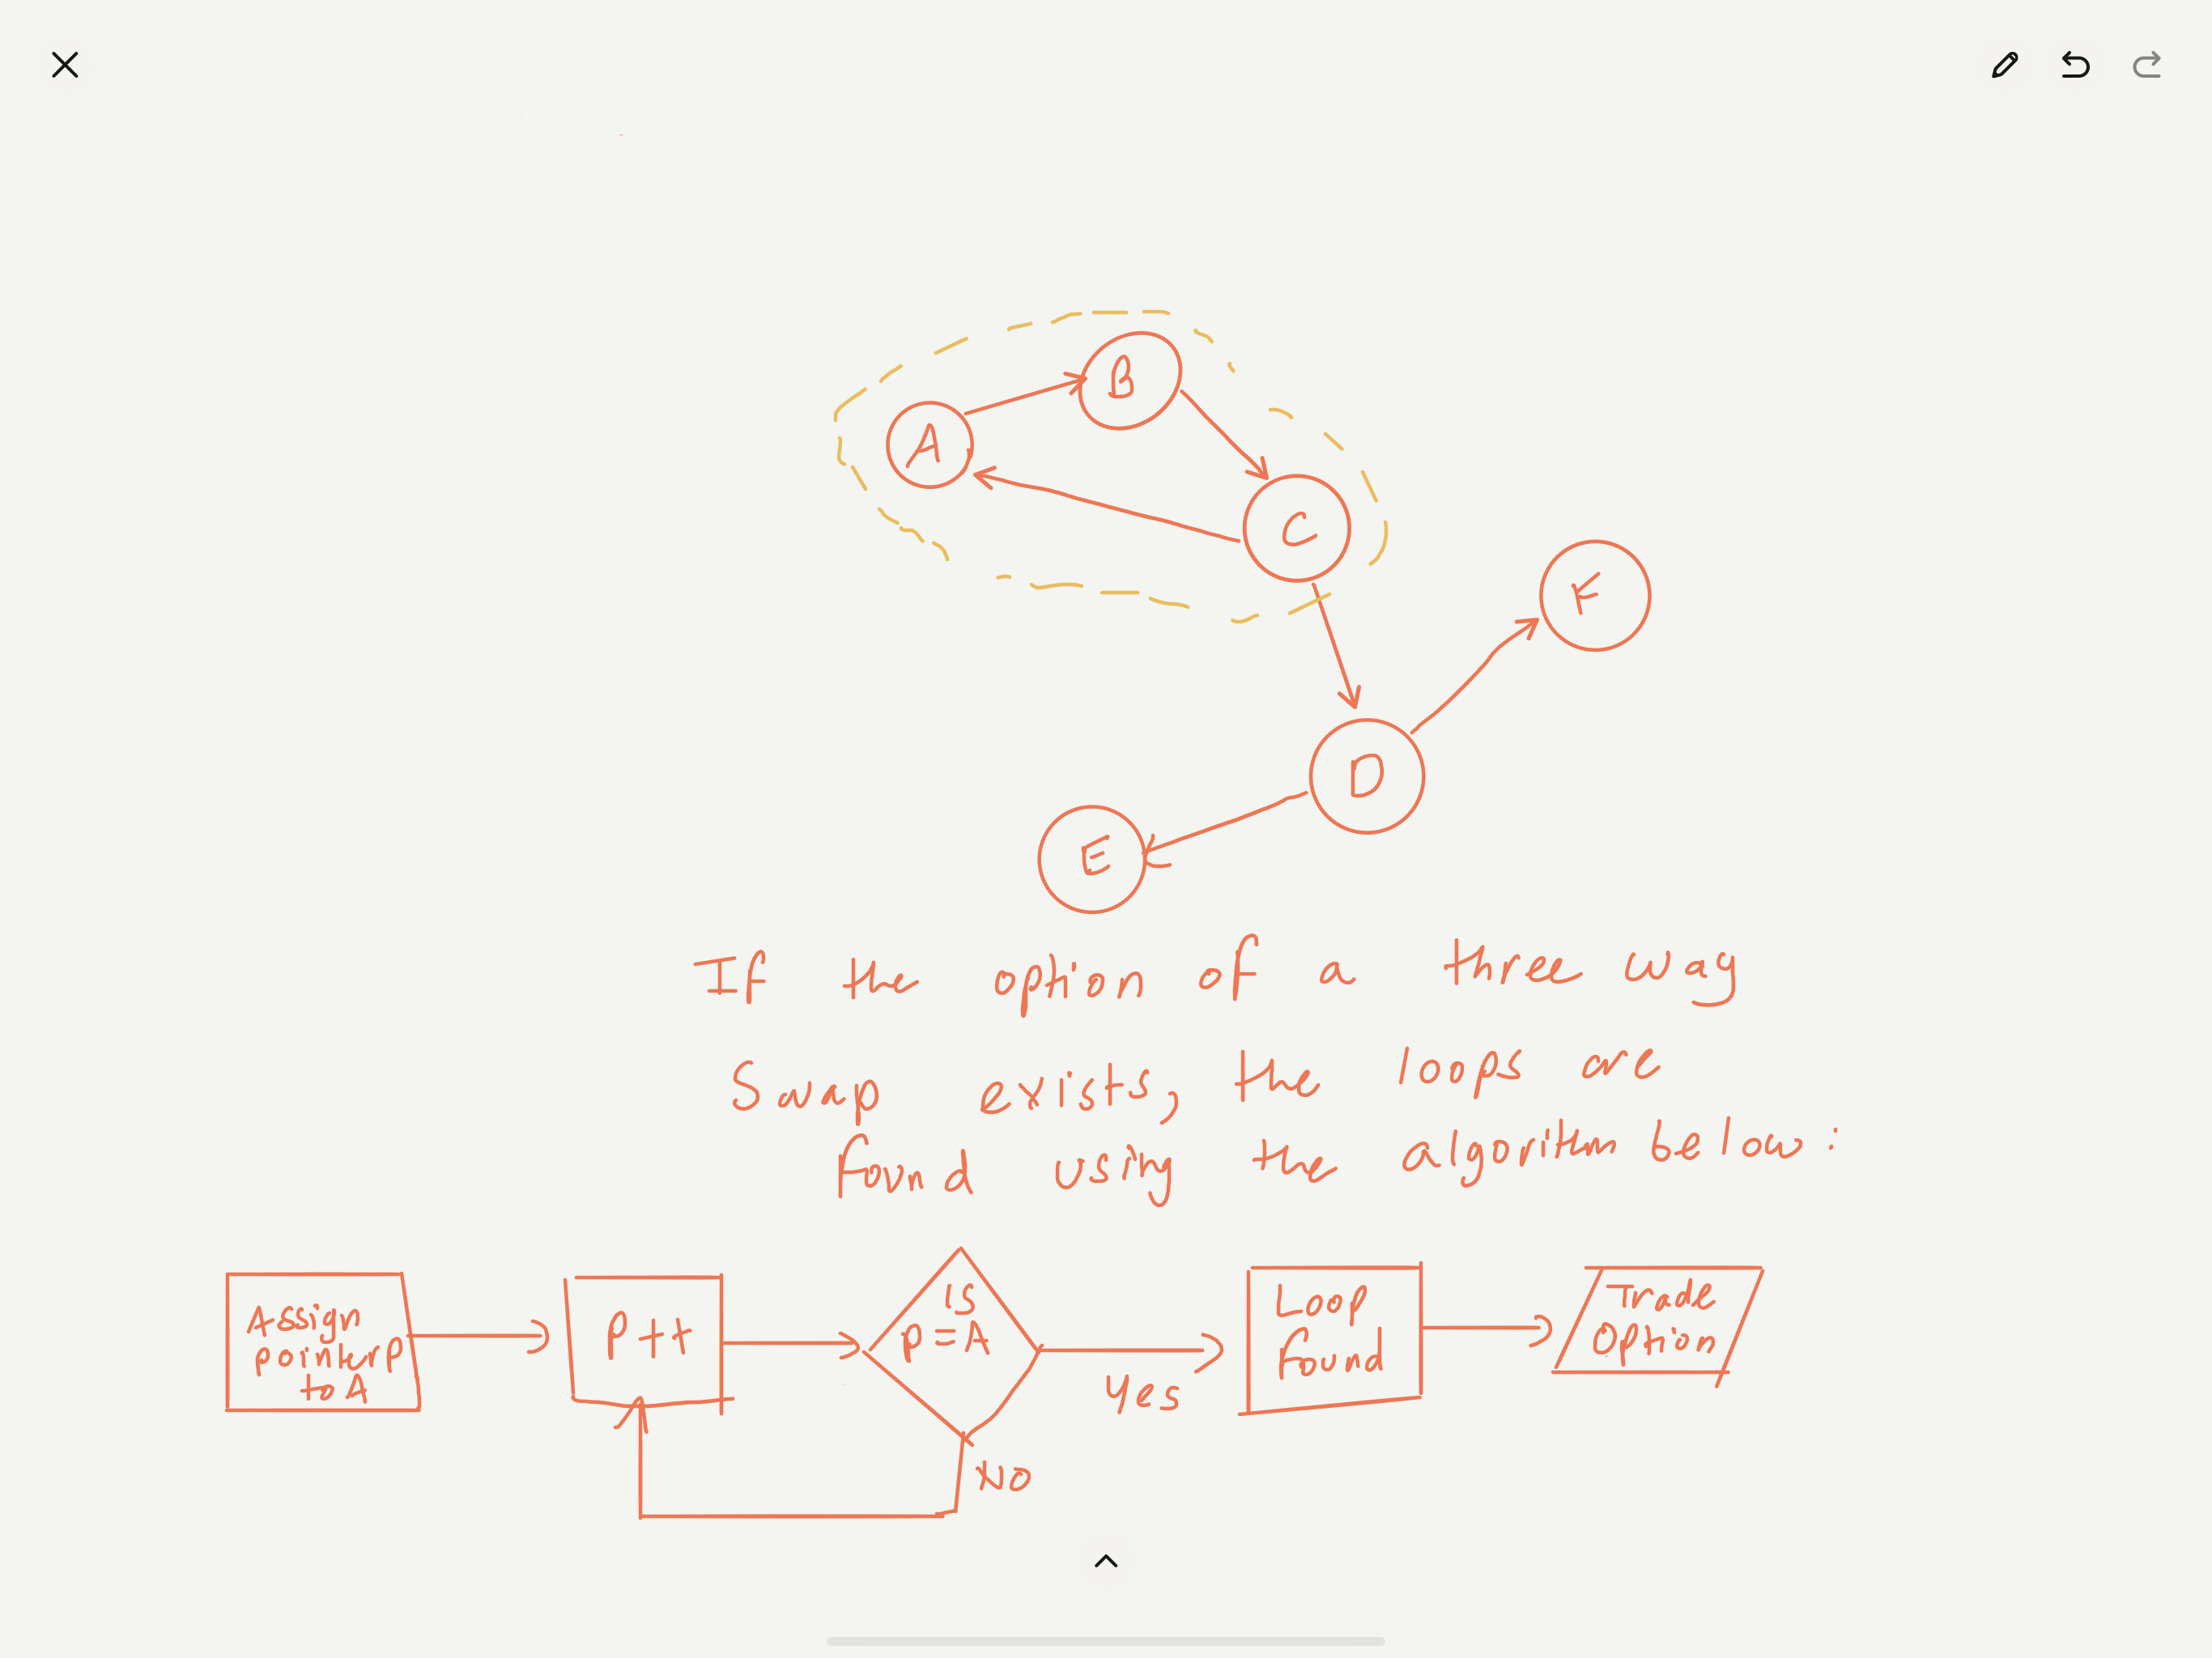 B
A
C
F
D
E
If the option of a three way
Swap exists, the loops are
found using the algorithm below:
Assign
pointer P
to A
P++
Is
P=A
Yes
No
Loop
found
Trade
Option